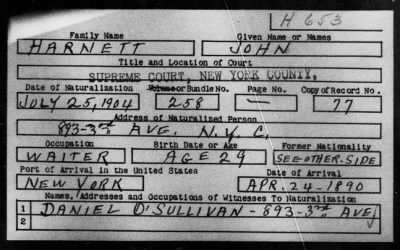 H 653
Family Name Given Name or Names
HARNETT JOHN
Title and Location of Court
SUPREME COURT, NEW YORK COUNTY,
Date of Naturalization Volume or Bundle No. Page No. Copy of Record No.
JULY 25, 1904 258 — 77
Address of Naturalized Person
893-3rd AVE. N.Y.C.
Occupation Birth Date or Age Former Nationality
WAITER AGE 29 SEE-OTHER-SIDE
Port of Arrival in the United States Date of Arrival
NEW YORK APR. 24-1890
Names, Addresses and Occupations of Witnesses To Naturalization
1 DANIEL O'SULLIVAN-893-3rd AVE
2